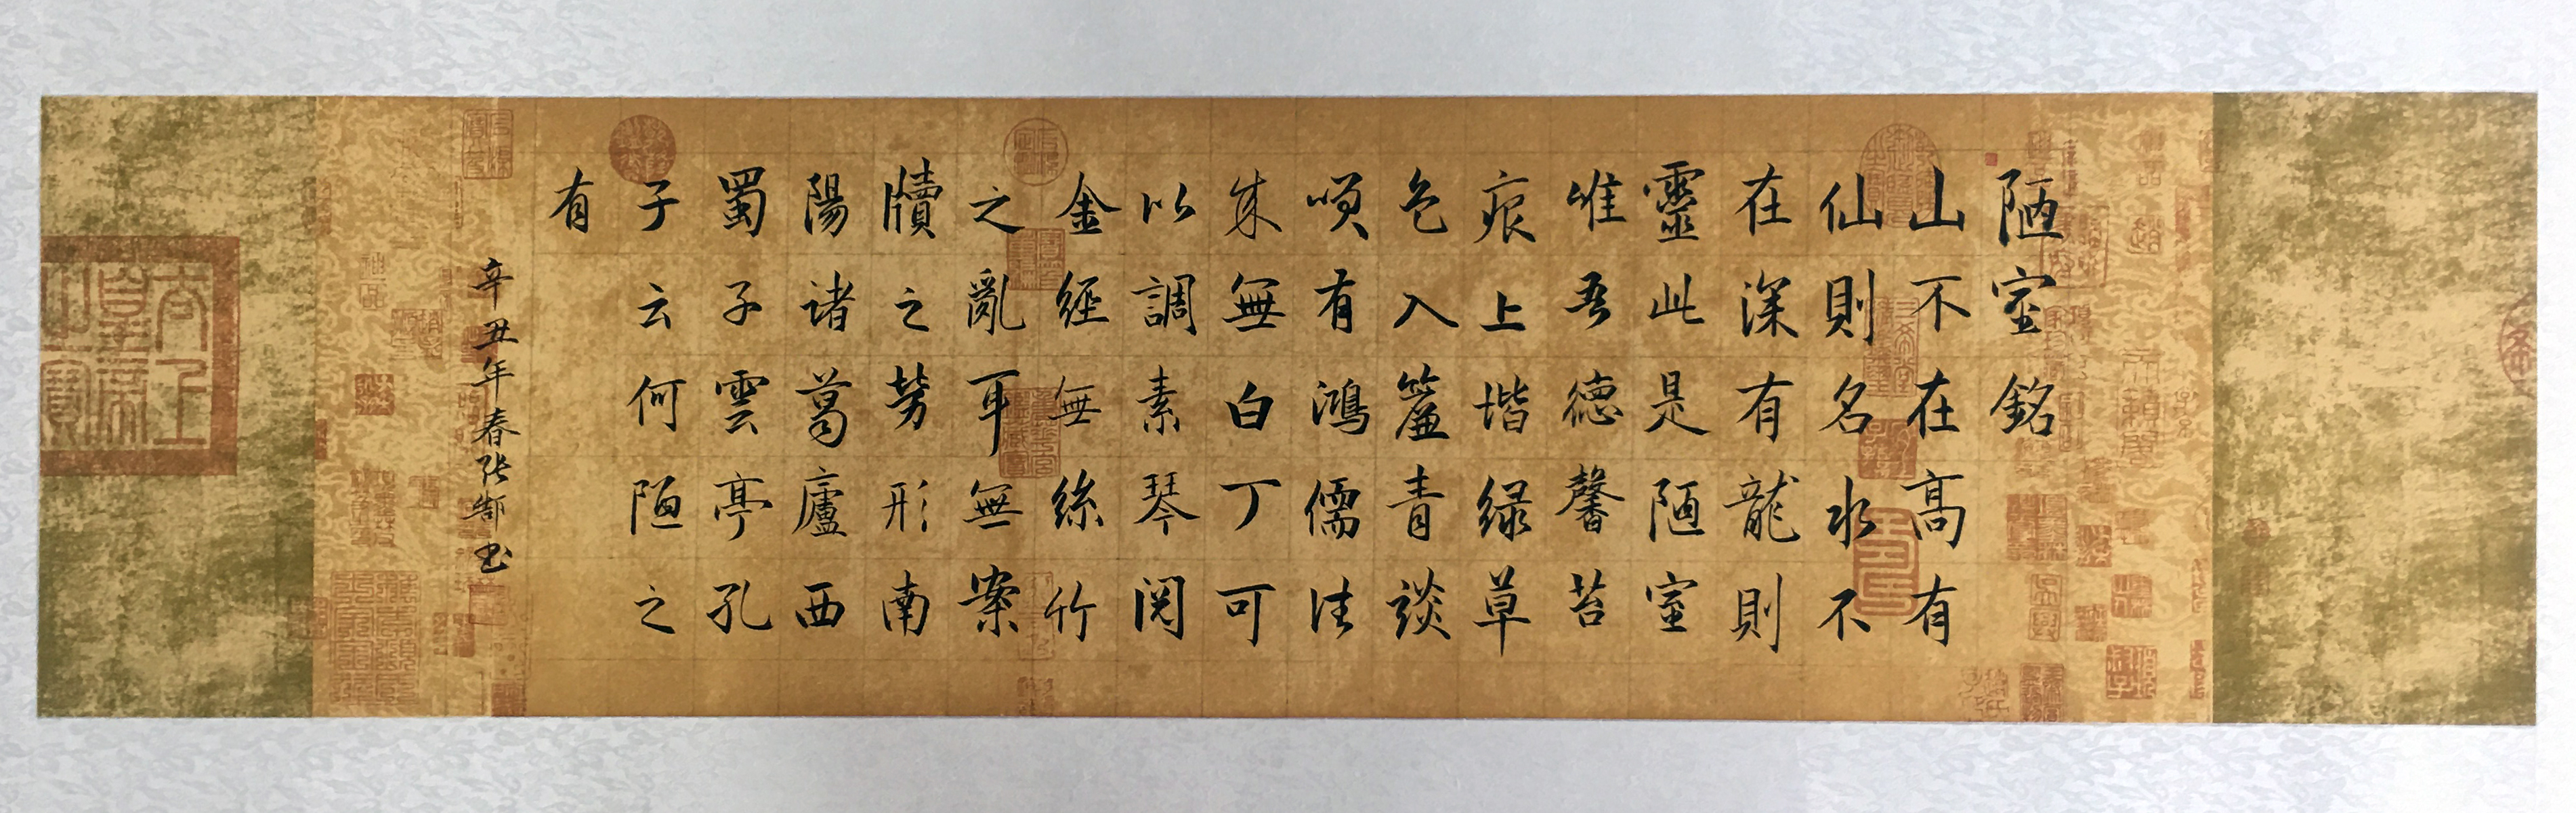 陋室銘
山不在高有
仙則名水不
在深有龍則
靈此是陋室
唯吾德馨苔
痕上堦緑草
色入簾青談
咲有鴻儒往
来無白丁可
以調素琴閲
金經無絲竹
之亂耳無案
牘之勞形南
陽諸葛廬西
蜀子雲亭孔
子云何陋之
有
辛丑年春张书
太上皇帝之寶